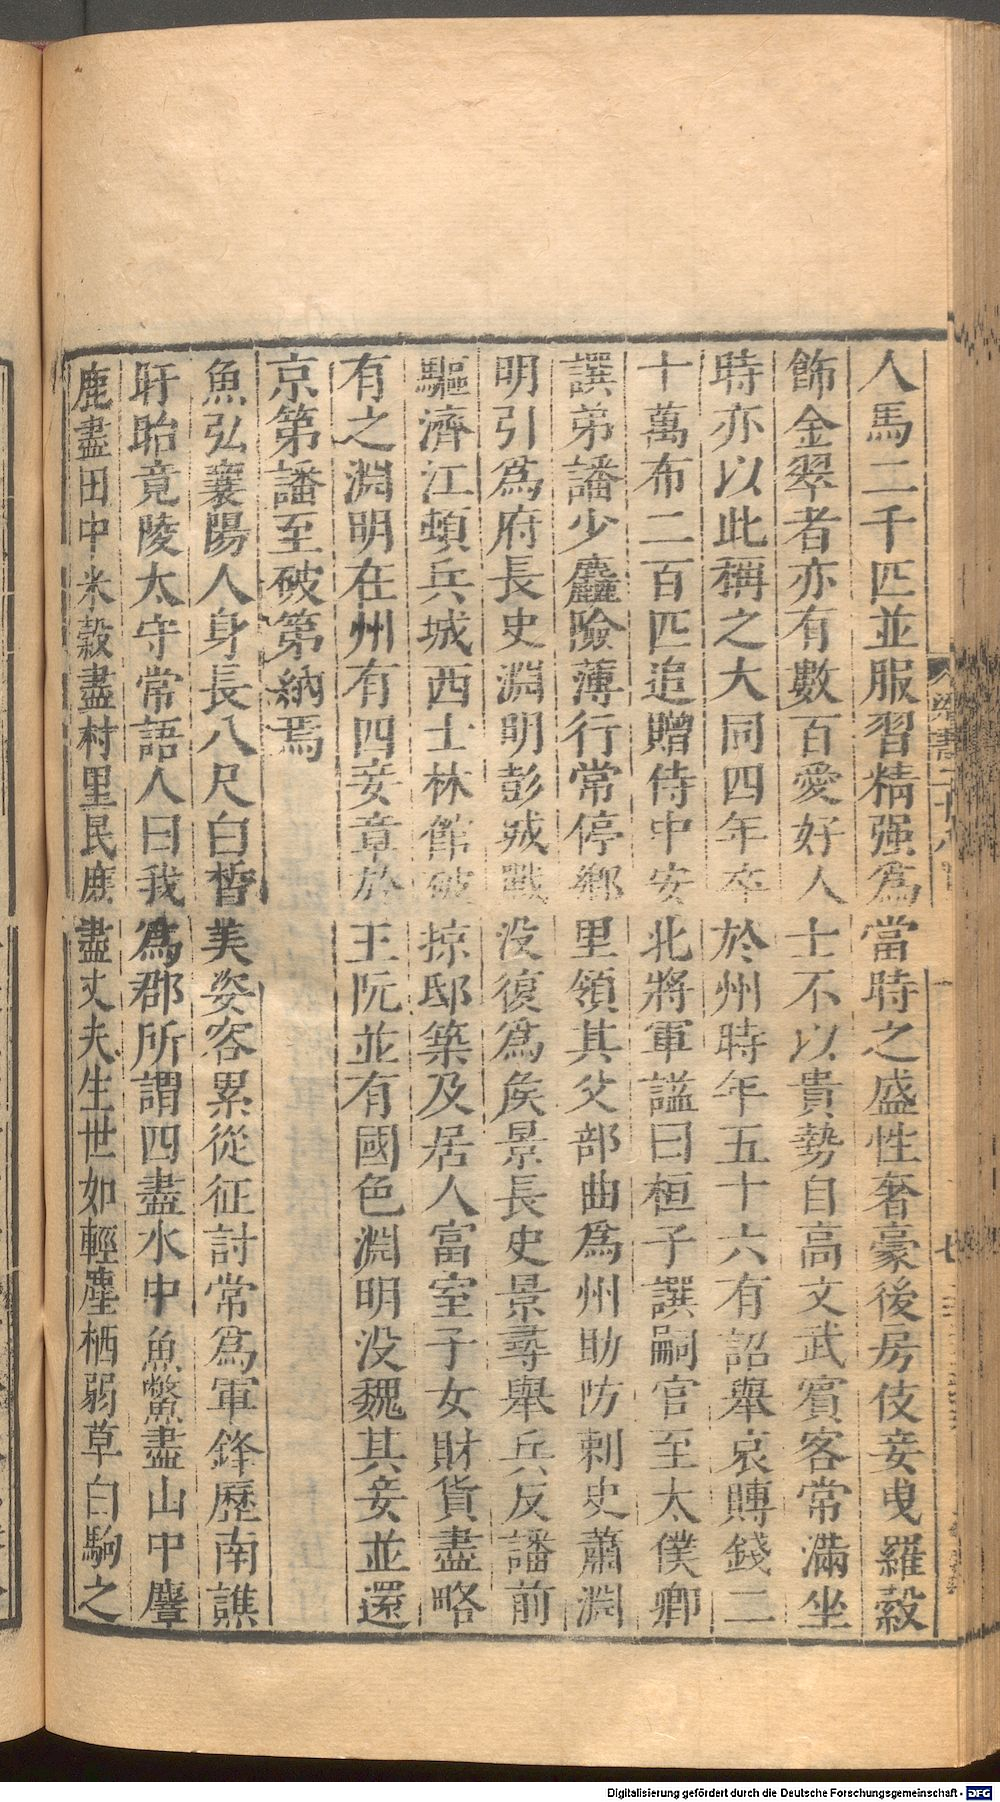 人馬二千匹並服習精强爲當時之盛性奢豪後房伎妾曳羅縠
飾金翠者亦有數百愛好人士不以貴勢自高文武賓客常滿坐
時亦以此稱之大同四年卒於州時年五十六有詔舉哀賻錢二
十萬布二百匹追贈侍中安北將軍諡曰桓子譔嗣官至太僕卿
譔弟譒少麤險薄行常停鄉里領其父部曲爲州助防刺史蕭淵
明引爲府長史淵明彭城戰没復爲矦景長史景尋舉兵反譒前
驅濟江頓兵城西士林館破掠邸築及居人富室子女財貨盡略
有之淵明在州有四妾章於王阮並有國色淵明没魏其妾並還
京第譒至破第納焉
魚弘襄陽人身長八尺白晳美姿容累從征討常爲軍鋒歷南譙
盱眙竟陵太守常語人曰我爲郡所謂四盡水中魚鱉盡山中麞
鹿盡田中米穀盡村里民庶盡丈夫生世如輕塵栖弱草白駒之
梁書二十八
七
Digitalisierung gefördert durch die Deutsche Forschungsgemeinschaft - DFG